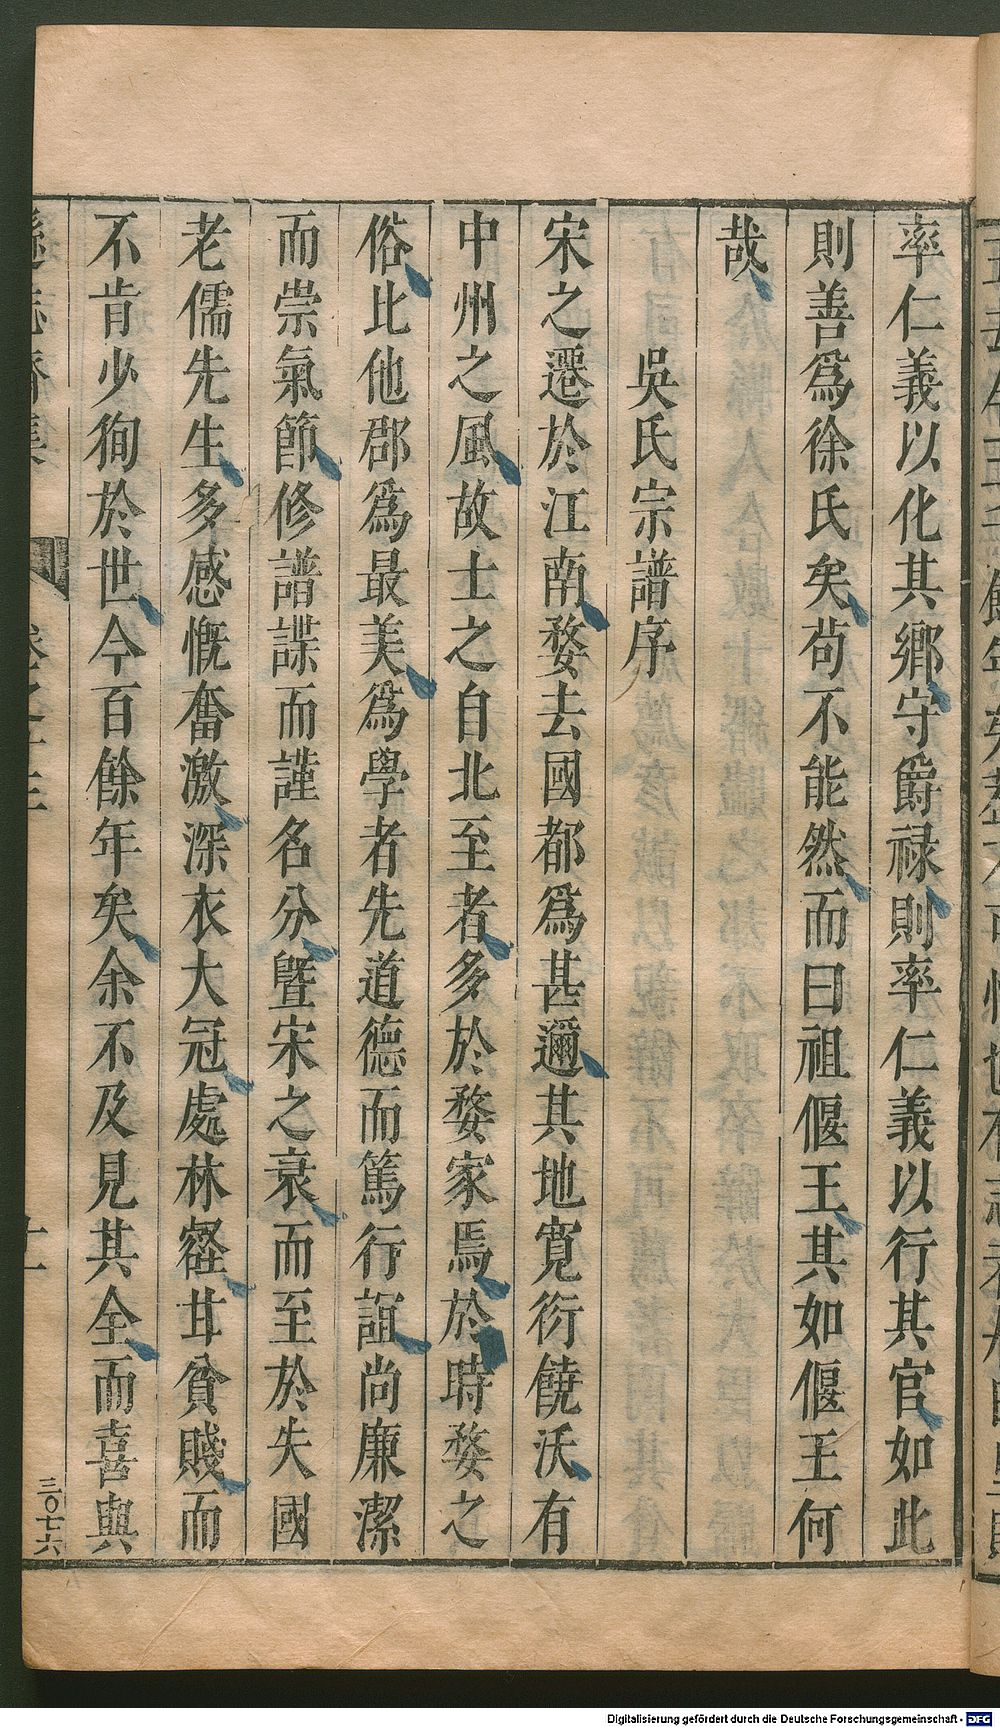 率仁義以化其鄉守爵祿則率仁義以行其官如此
則善爲徐氏矣茍不能然而曰祖偃王其如偃王何
哉
吳氏宗譜序
宋之遷於江南婺去國都爲甚邇其地寬衍饒沃有
中州之風故士之自北至者多於婺家焉於時婺之
俗比他郡爲最美爲學者先道德而篤行誼尚廉潔
而崇氣節修譜諜而謹名分曁宋之衰而至於失國
老儒先生多感慨奮激深衣大冠處林壑甘貧賤而
不肯少徇於世今百餘年矣余不及見其全而喜與
遜志齋集
卷之十三
十一
三〇七六
Digitalisierung gefördert durch die Deutsche Forschungsgemeinschaft - DFG